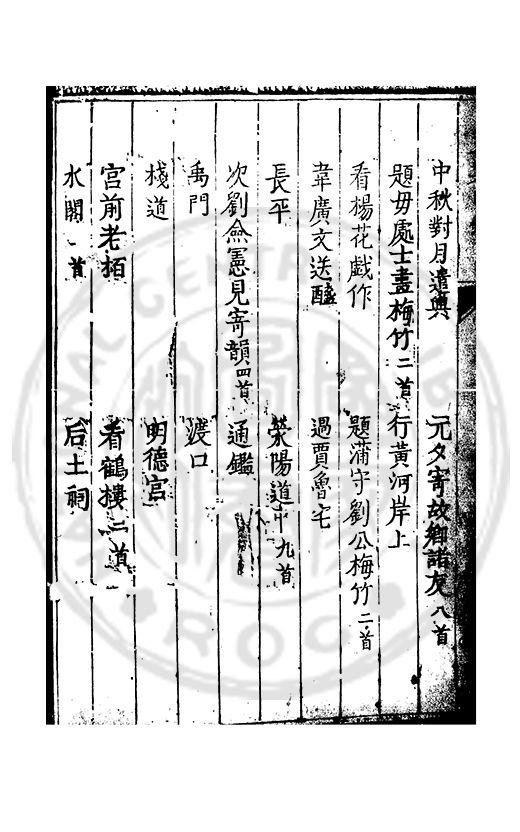 中秋對月遣興　元夕寄故鄉諸友八首
題毋處士畫梅竹二首　行黃河岸上
看楊花戲作　題蒲守劉公梅竹二首
韋廣文送醝　過賈魯宅
長平　滎陽道中九首
次劉僉憲見寄韻四首　通鑑
禹門　渡口
棧道　明德宮
宮前老栢　看鶴樓二首
水閣一首　后土祠
NATIONAL CENTRAL
ROC